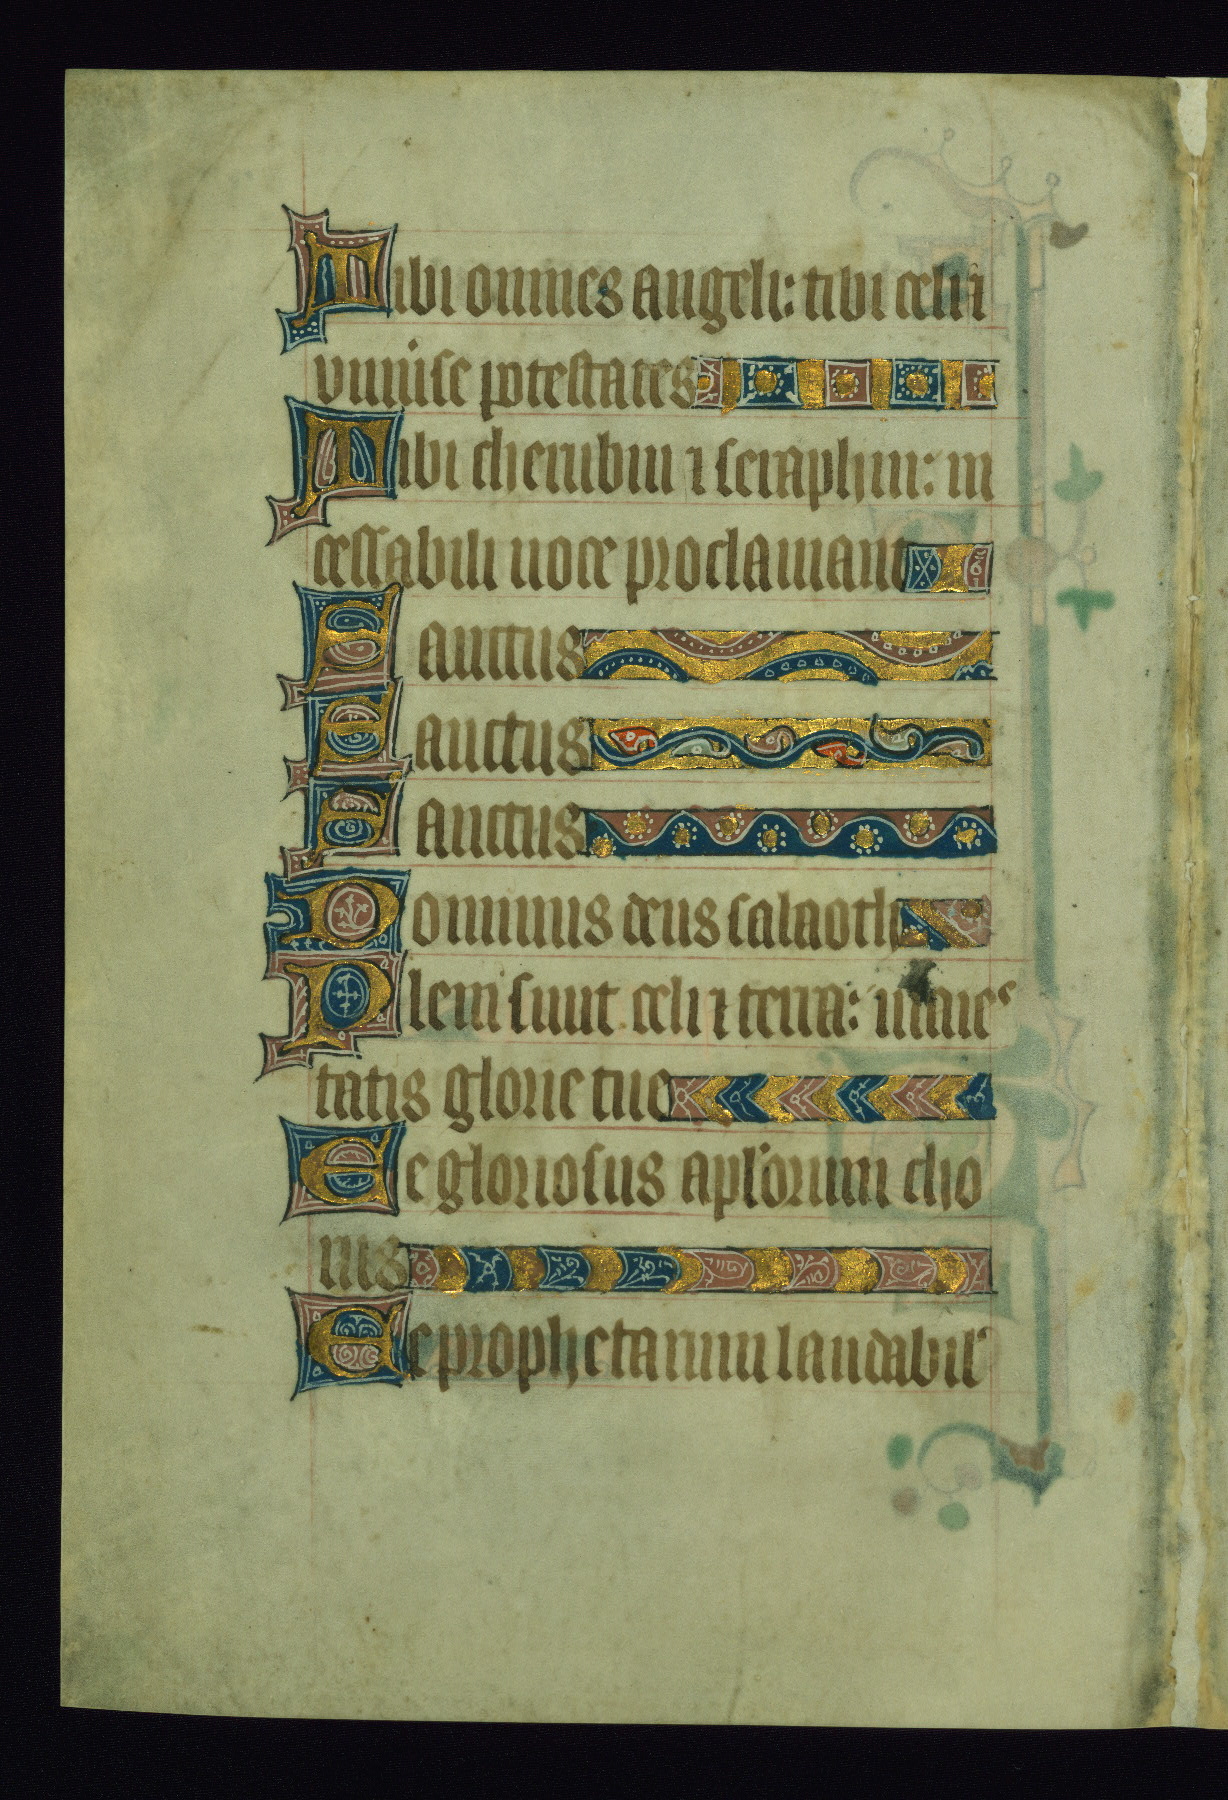 Tibi omnes angeli: tibi celi ⁊
vniuerse potestates
Tibi cherubin ⁊ seraphin: in
cessabili uoce proclamant
Sanctus
Sanctus
Sanctus
Dominus deus sabaoth
Pleni sunt celi ⁊ terra: maies
tatis glorie tue
Te gloriosus aplorum cho
rus
Te prophetarum laudabil'